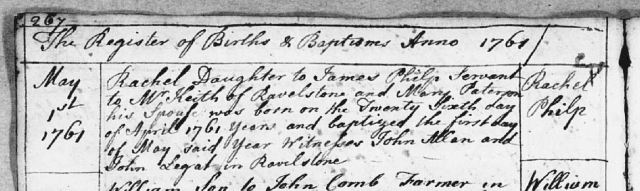 267
The Register of Births & Baptisms Anno 1761
May 1st 1761
Rachel Daughter to James Philp Servant
to Mr. Keith of Ravelstone and Mary Paterson
his Spouse was born on the Twenty Sixth day
of April 1761 Years and baptized the first day
of May said Year Witnesses John Allan and
John Legat in Ravilstone
Rachel
Philp
William Son to John Comb Farmer in
William